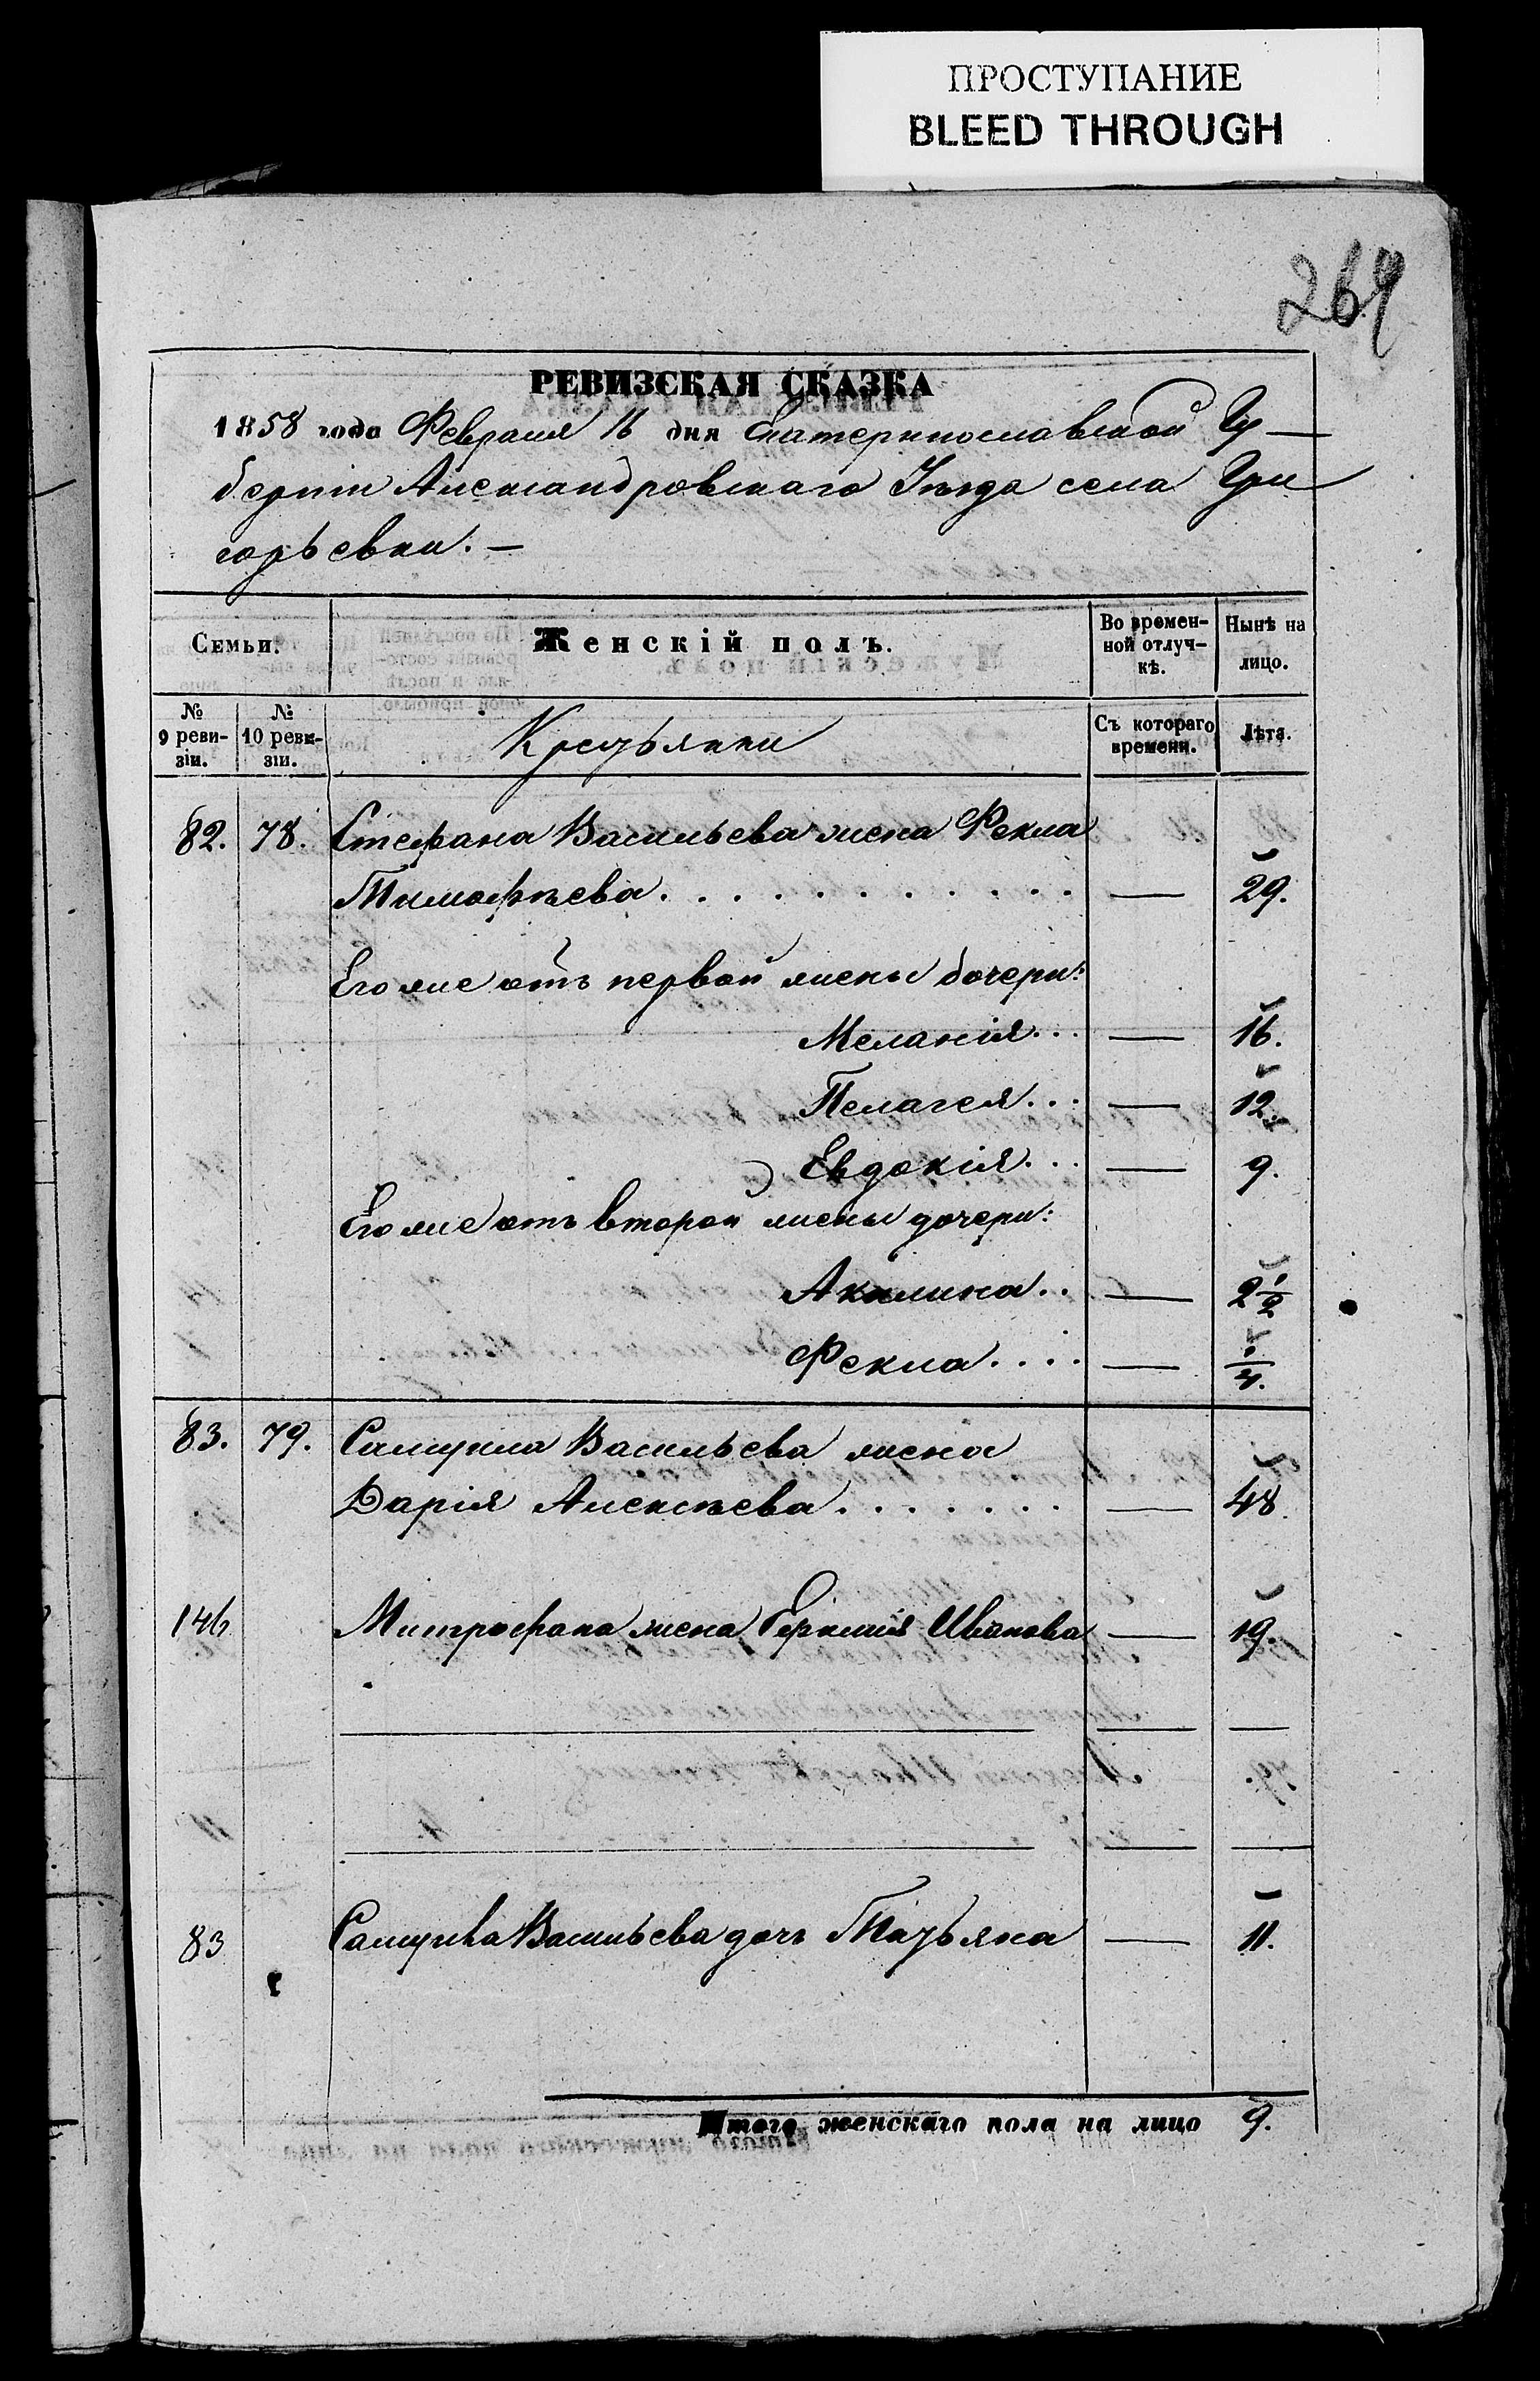 ПРОСТУПАНИЕ
BLEED THROUGH
264
РЕВИЗСКАЯ СКАЗКА
1858 года Февраля 16 дня Екатеринославской Гу-
берніи Александровскаго Уѣзда села Гри
горьевки. —
Семьи.
Женскій полъ.
Во времен-
ной отлуч-
кѣ.
Нынѣ на
лицо.
№
9 реви-
зіи.
№
10 реви-
зіи.
Крестьянки
Съ котораго
времени.
Лѣта.
82. 78. Стефана Васильева жена Фекла
Тимофѣева . . . . . . . . . . . — 29.
Его же отъ первой жены дочери:
Меланія . . . — 16.
Пелагея . . . — 12.
Евдокія . . . — 9.
Его же отъ второй жены дочери:
Акилина . . — 2 1/2
Фекла . . . . —
83. 79. Самуила Васильева жена
Дарія Алексѣева . . . . . . . — 48.
146 Митрофана жена Ивакова — 19.
83 Самуила Васильева дочь Татьяна — 11.
Итого женскаго пола на лицо 9.